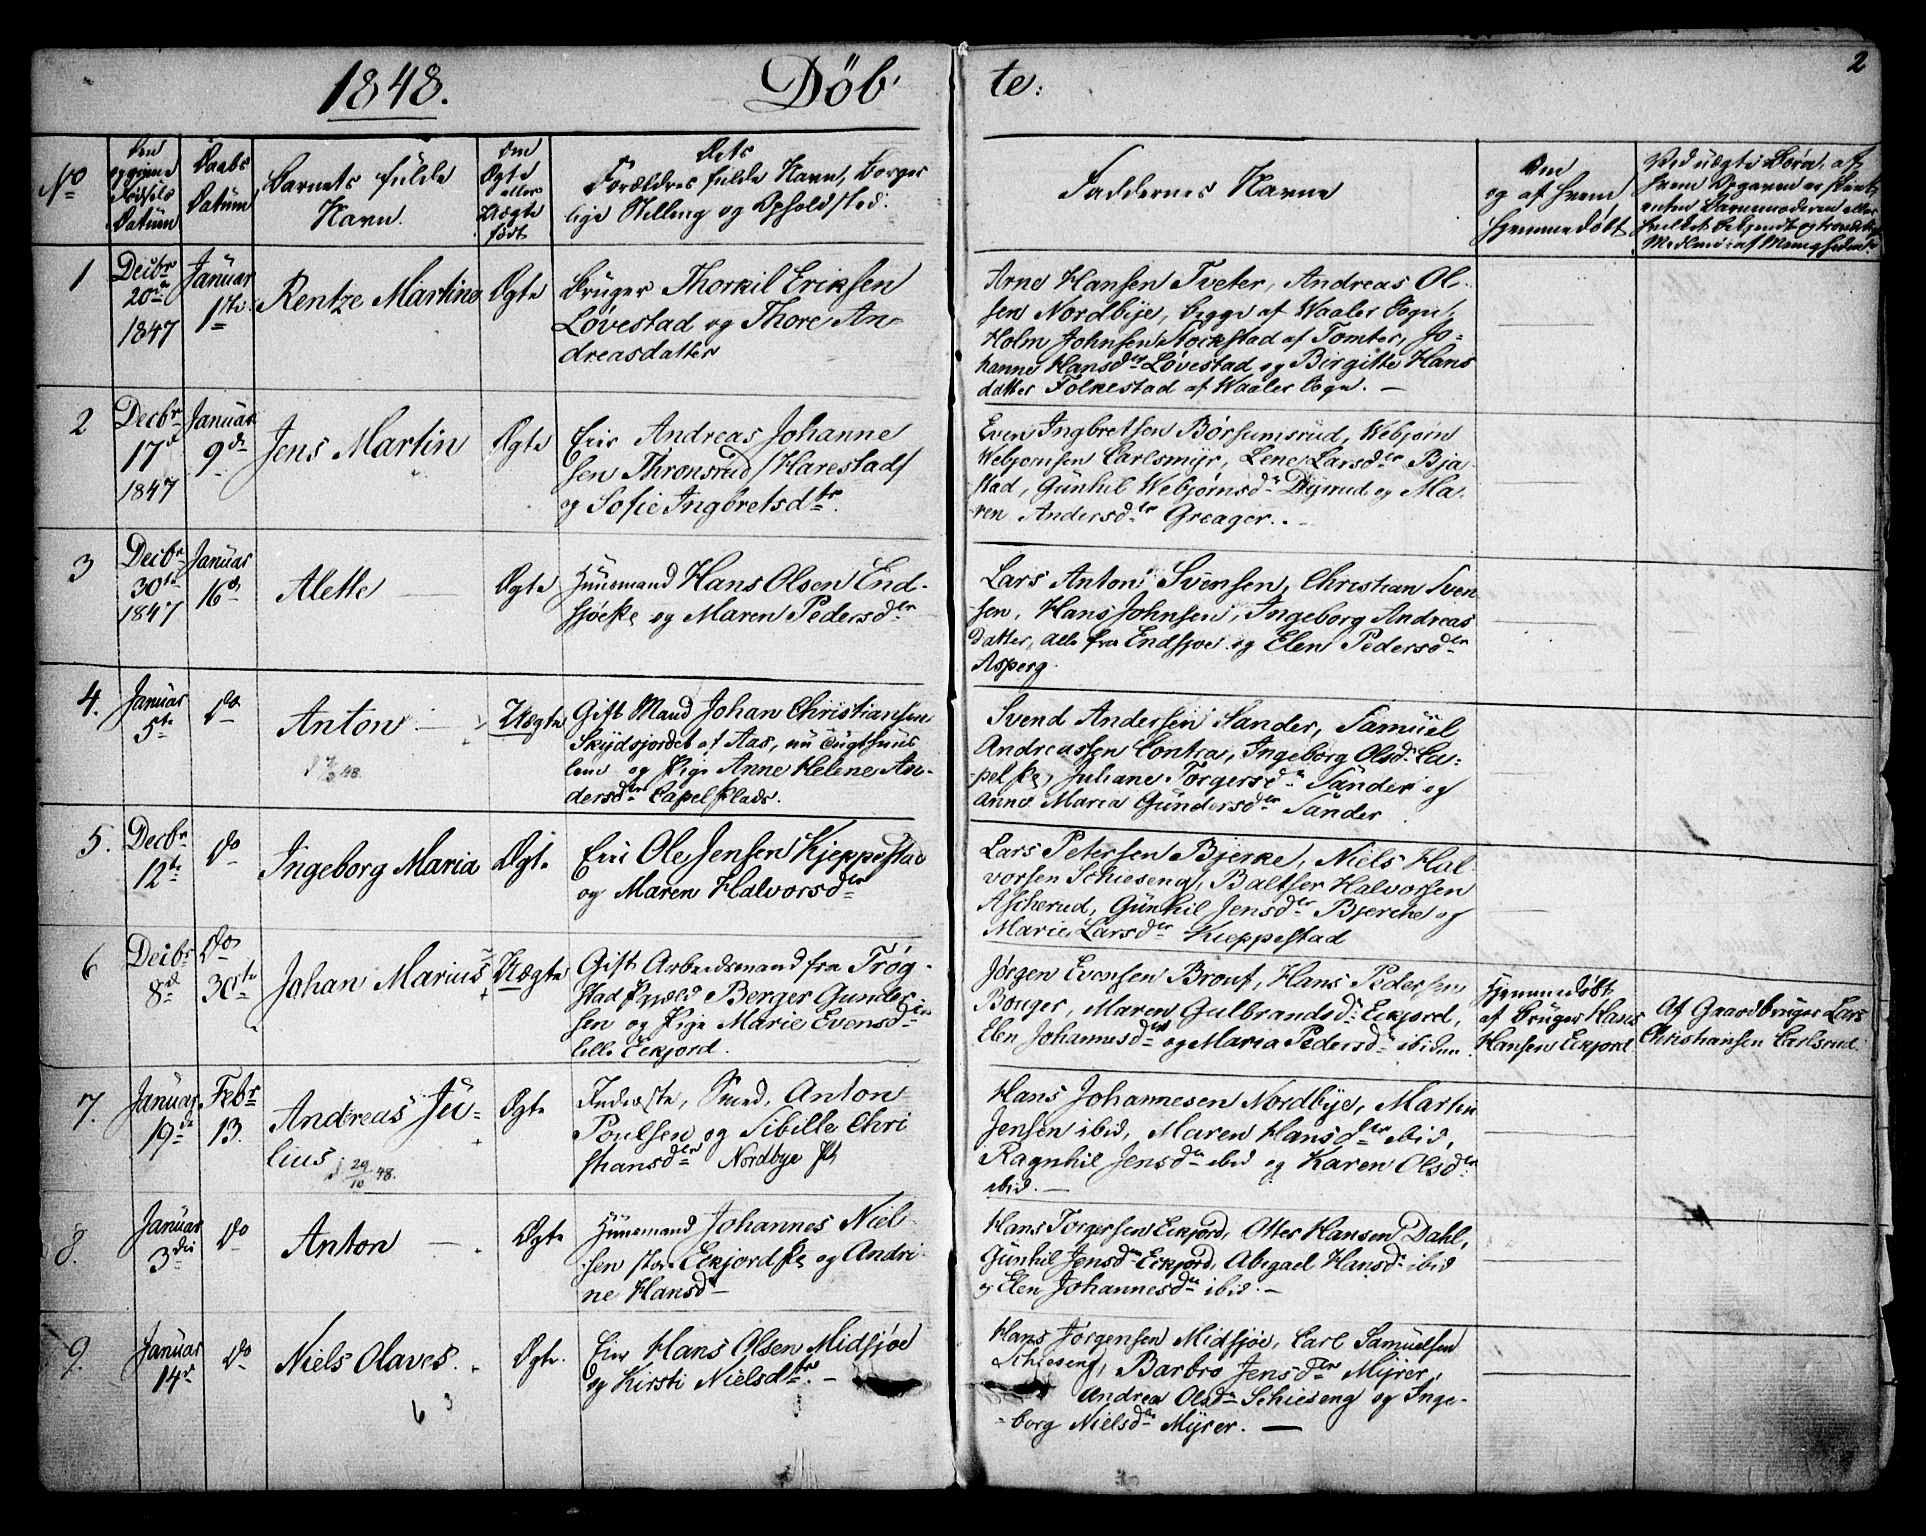 1848. Döb te: 2
No
Den opgivne Fødsels Datum
Daabs Datum
Barnets fulde Navn.
Om Ægte eller Uægte født
Dets Forældres fulde Navn, Borgerlige Stilling og Opholdsted.
Faddernes Navne
Om og af hvem hjemmedøbt
Ved uægte Børn, af hvem Opgaven er skeet, enten Barnemoderen eller
1
Decbr 20de 1847
Januar 1ste
Rentze Martine
Ægte
Bruger Thorkil Eriksen
Løvestad og Thore An-
dreasdatter
Arne Hansen Tveter, Andreas Ol-
sen Nordbye, begge af Waaler Sogn,
Holm Johnsen Stockstad af Tomter, Jo-
hanne Hansdtr Løvestad og Birgitte Hans
datter Folkestad af Waaler Sogn. —
2
Decbr 17d 1847
Januar 9de
Jens Martin
Ægte
Eier Andreas Johanne
sen Thronsrud /Harestad/
og Sofie Ingbretsdtr.
Even Ingbretsen Børsumsrud, Webjørn
Webjørnsen Carlsmyr, Lene Larsdtr Bja-
stad, Gunhil Webjørnsdr Dyrud og Ma-
ren Andersdtr Greager. -
3
Decbr 30te 1847
Januar 16d
Alette
Ægte
Huusmand Hans Olsen End-
sjøeske og Maren Pedersdtr
Lars Anton Svensen, Christian Sven
sen, Hans Johnsen, Ingeborg Andreas
datter, alle fra Endsjøe og Elen Pedersdtr
Asperg.
4.
Januar 5te
do
Anton
d 48.
Uægte
Gift Mand Johan Christiansen
Skydsjordet af Aas, nu Tugthuus
lem og Pige Anne Helene An-
dersdtr Capelsplads.
Svend Andersen Sander, Samuel
Andreassen Contra, Ingeborg Olsdr Ca-
pelske, Juliane Torgersdr Sander og
Anne Maria Gundersdtr Sander
5.
Decbr 12te
do
Ingeborg Maria
Ægte
Eier Ole Jensen Kjeppestad
og Maren Halvorsdtr
Lars Petersen Bjerke, Niels Hal-
vorsen Schieseng, Baltser Halvorsen
Ascherud, Gunhil Jensdtr Bjerche og
Marie Larsdtr Kieppestad
6
Decbr 8d
do 30te
Johan Marius
Uægte
Gift Arbeidsmand fra Trøg-
stad Præstgjeld Berger Gunder-
sen og Pige Marie Evensdtr
lille Eckjord.
Jørgen Evensen Brout, Hans Pedersen
Bonger, Maren Gulbrandsdr Eckjord,
Elen Johannesdtr og Maria Pedersdr ibidem.
Hjemmedøbt
af Bruger Hans
Hansen Eckjord
Af Gaardbruger Lars
Christiansen Carlsrud.
7.
Januar 19de
Febr 13.
Andreas Ju-
lius
d 29/10 48.
Ægte
Inderste, Smed, Anton
Poulsen og Sibille Chri
stiansdtr Nordbye
Hans Johannesen Nordbye, Martin
Jensen ibid, Maren Hansdtr ibid,
Ragnhil Jensdr ibid og Karen Olsdtr
ibid. —
8.
Januar 3die
do
Anton
Ægte
Huusmand Johannes Niel-
sen store Eckjordske og Andri-
ne Hansdr
Hans Torgersen Eckjord, Otter Hansen Dahl,
Gunhil Jensdr Eckjord, Abigael Hansdr ibid
og Elen Johannesdr ibid. —
9.
Januar 14d
do
Niels Olaves.
6 3
Ægte.
Eier Hans Olsen Midsjøe
og Kirsti Nielsdtr. —
Hans Jørgensen Midsjøe, Carl Samuelsen
Schieseng, Barbro Jensdtr Myrer,
Andrea Olsdr Schieseng og Inge-
borg Nielsdtr Myrer. —